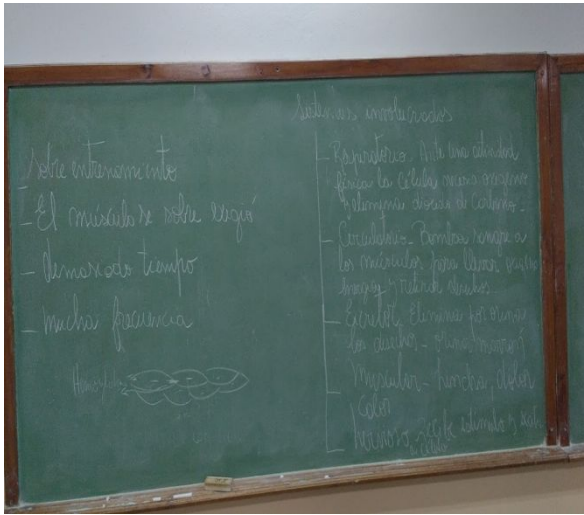 Sobre entrenamiento
- El músculo se sobre exigió
- demasiado tiempo
- mucha frecuencia
Sistemas involucrados
- Respiratorio. Ante una actividad
física la célula oxígeno
y elimina dióxido de Carbono.
- Circulatorio. Bombea sangre a
los músculos para llevar
y retirar desechos
- Excretor. Eliminar por orina
los desechos - orina,
Muscular - hincha, dolor
Calor
- Nervioso. Recibe estímulo y